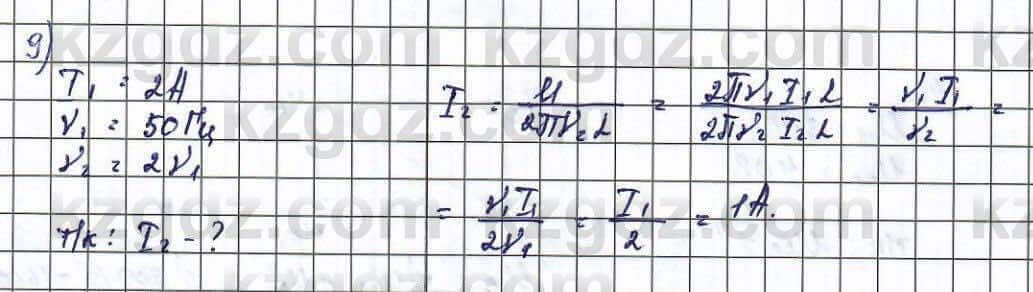 9)
I₁ = 2A
ν₁ = 50Гц
ν₂ = 2ν₁
Т/к: I₂ - ?
I₂ = U/2πν₂L = 2πν₁I₁L/2πν₂I₂L = ν₁I₁/ν₂ =
= ν₁I₁/2ν₁ = I₁/2 = 1A.
kzgdz.com kzgdz.com kzgdz.com
kzgdz.com kzgdz.com kzgdz.com